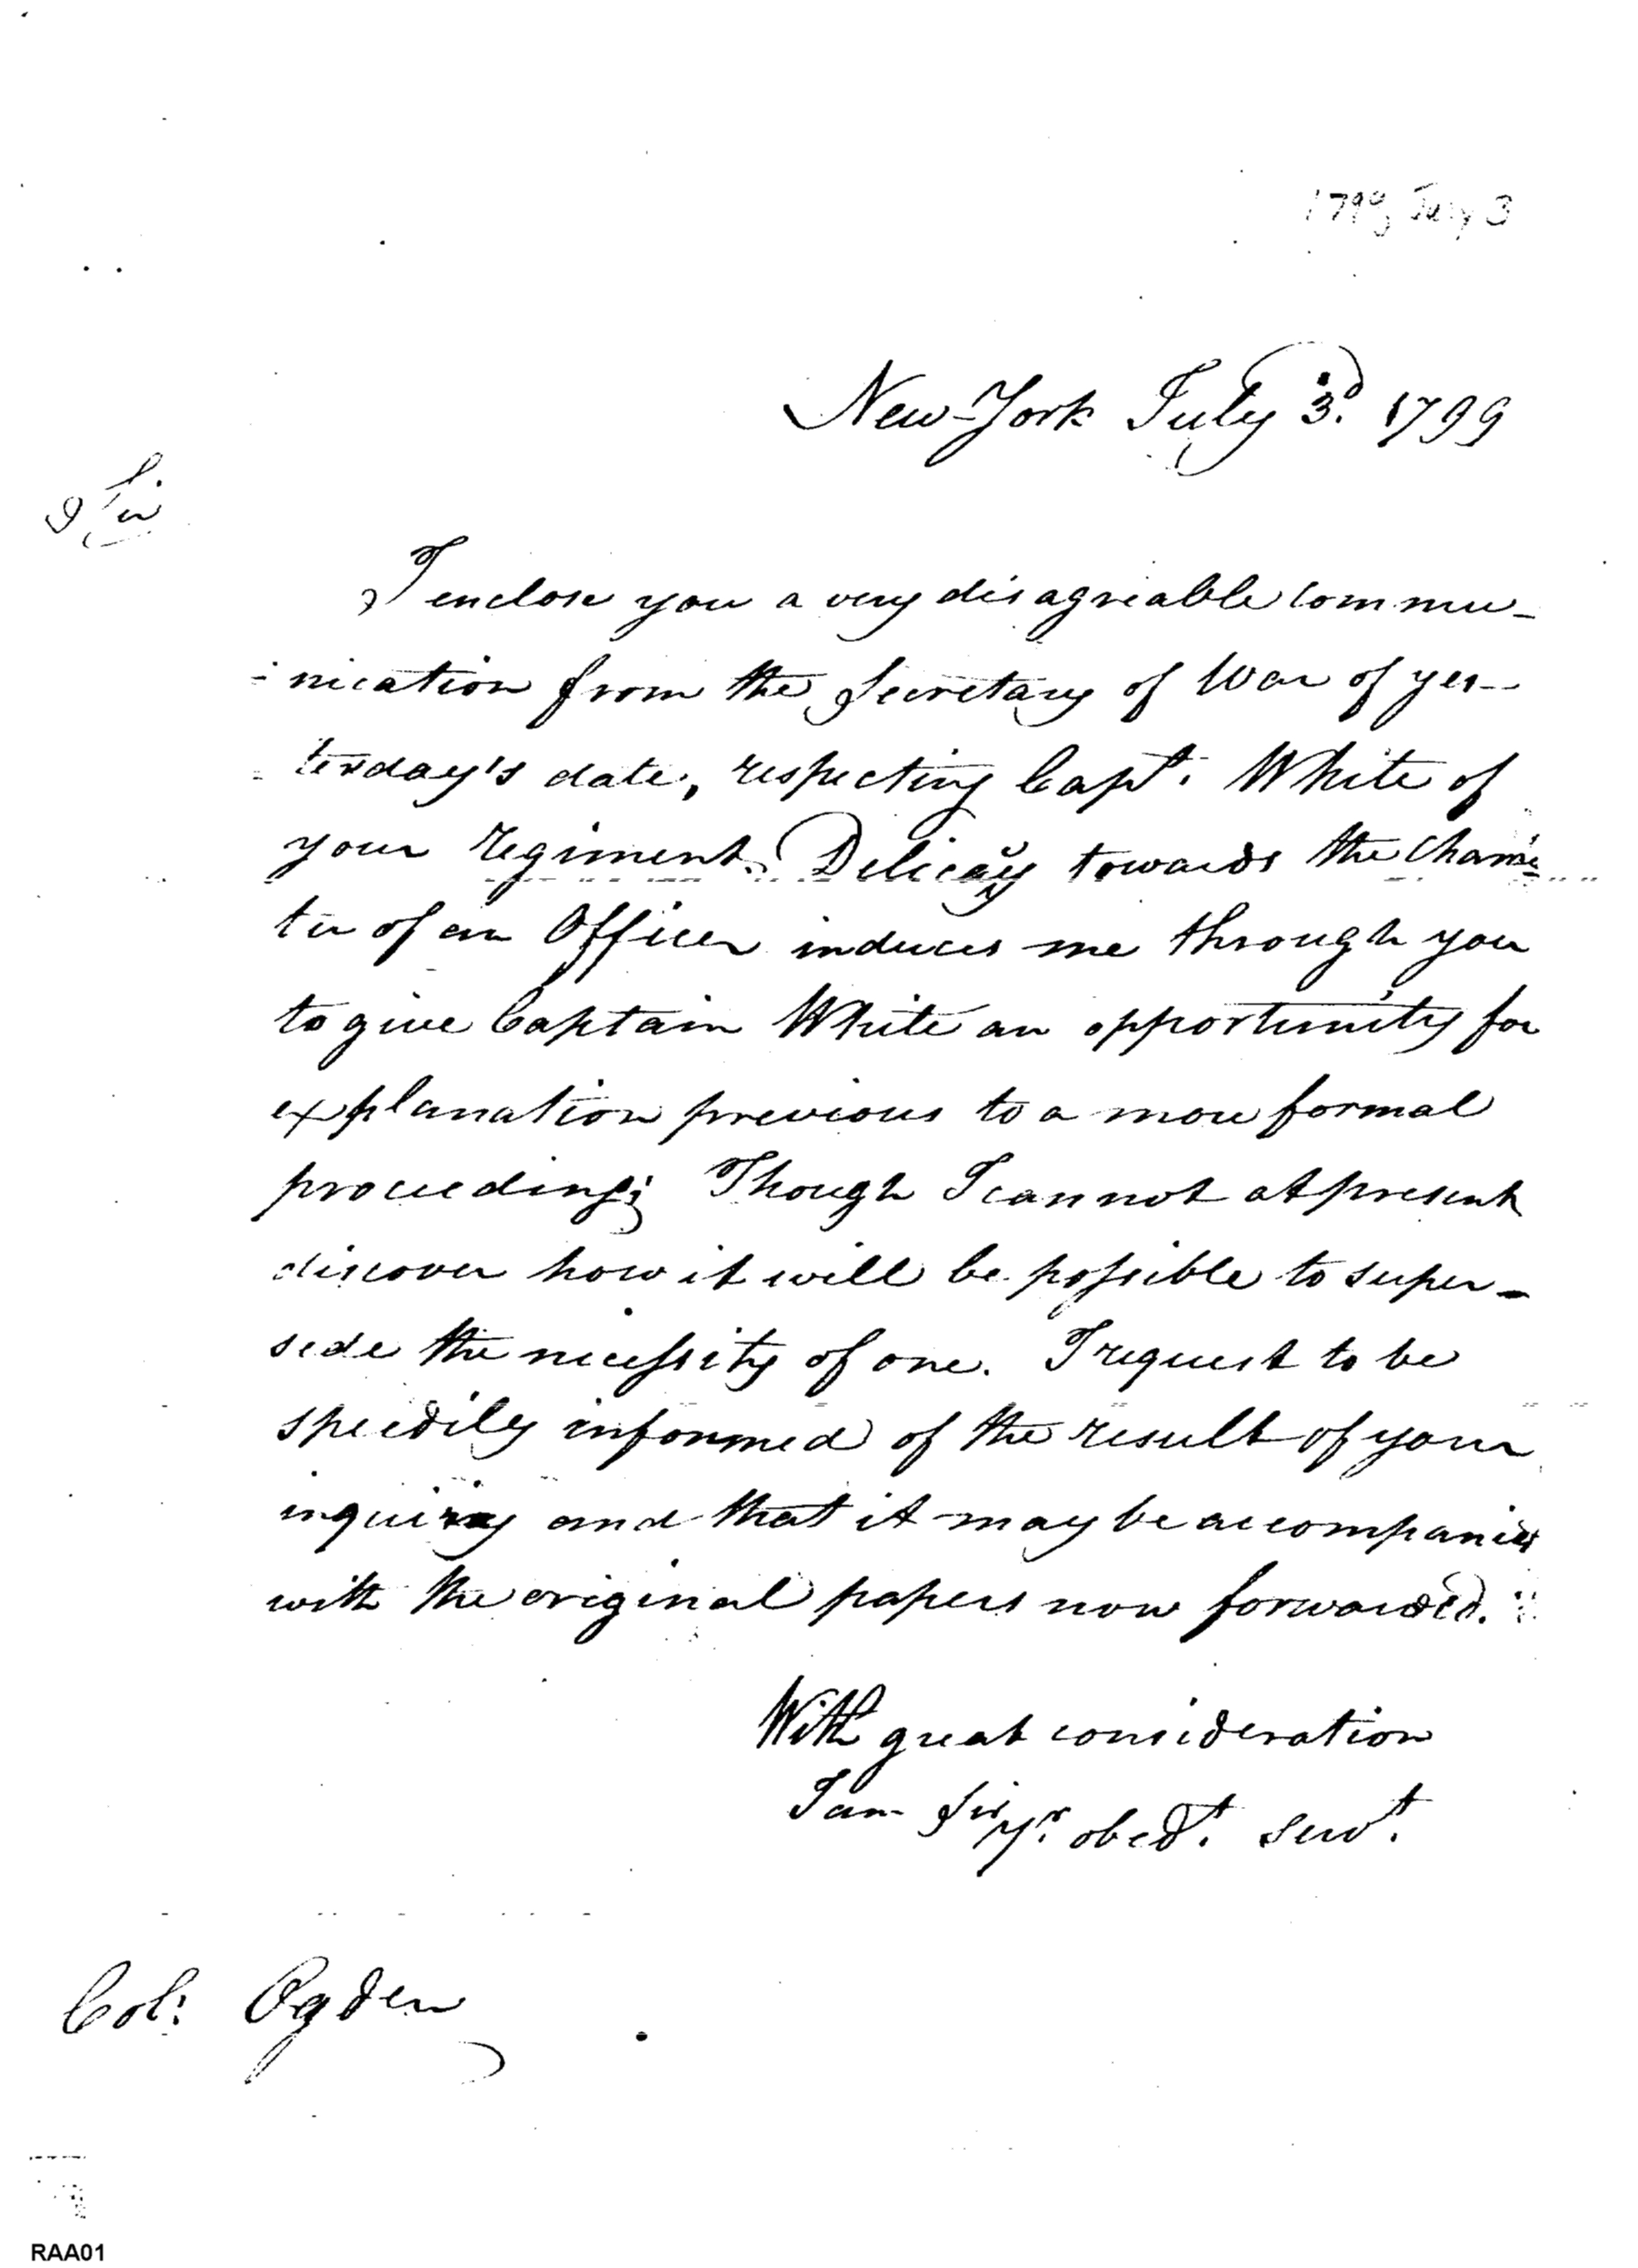 1799 July 3
New-York July 3d. 1799
Sir
I enclose you a very disagreable commu-
-nication from the Secretary of War of yes-
-terday's date, respecting Capt. White of
your regiment. Delicacy towards the charac-
ter of an Officer induces me through you
to give Captain White an opportunity for
explanation previous to a more formal
proceeding; Though I cannot at present
discover how it will be possible to super-
sede the necessity of one. I request to be
speedily informed of the result of your
inquiry and that it may be accompanied
with the original papers now forwarded.
With great consideration
I am Sir Yr. obedt. servt.
Col: Ogden
RAA01